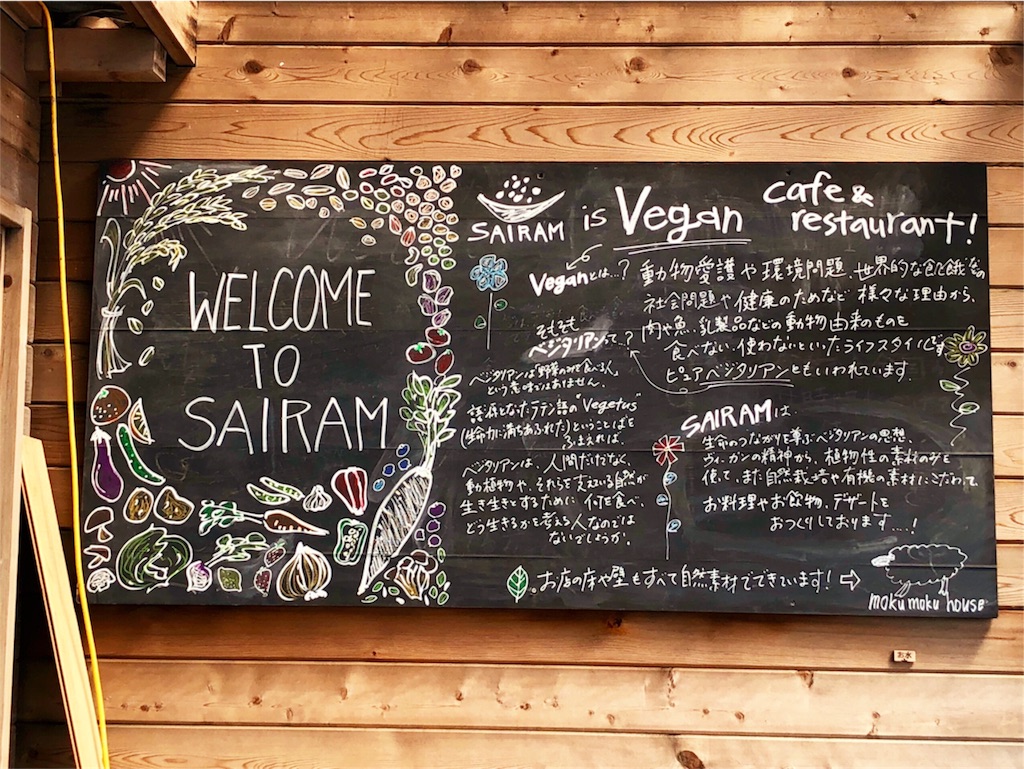 WELCOME
TO
SAIRAM
SAIRAM is Vegan cafe &
restaurant!
Veganとは…?
動物愛護や環境問題、世界的な食と飢餓などの
社会問題や健康のためなど 様々な理由から、
肉や魚、乳製品などの動物由来のものを
食べない、使わないといったライフスタイルです
ピュアベジタリアンともいわれています.
そもそも
ベジタリアンって、?
ベジタリアンは“野菜のみで食べる人”
という意味ではありません.
語源となったラテン語の“Vegetus”
(生命力に満ちあふれた)ということばを
ふまえれば、
ベジタリアンは、人間だけでなく、
動植物や、それらを支えている自然が
生き生きとするために 何を食べ、
どう生きるかを考える人なのでは
ないでしょうか.
SAIRAMは
生命のつながりを尊ぶベジタリアンの思想、
ヴィーガンの精神から、植物性の素材のみを
使って、また自然栽培や有機の素材にこだわって
お料理やお飲物、デザートを
おつくりしております....!
お店の床や壁もすべて自然素材でできています! ⇨
moku moku house